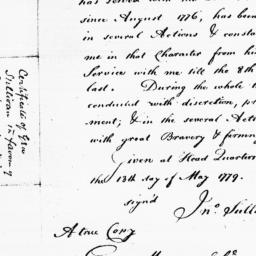 has served with me
since August 1776, has been
in several Actions & consta
me in that Character from hi
Service with me till the 8th
last. During the whole t
conducted with discretion, pr
ment; & in the several Act
with great Bravery & firmn
Given at Head Quarter
the 13th day of May 1779.
signd
Jno. Sulli
A true Copy
Certificate of Gen
Sullivan in favor of